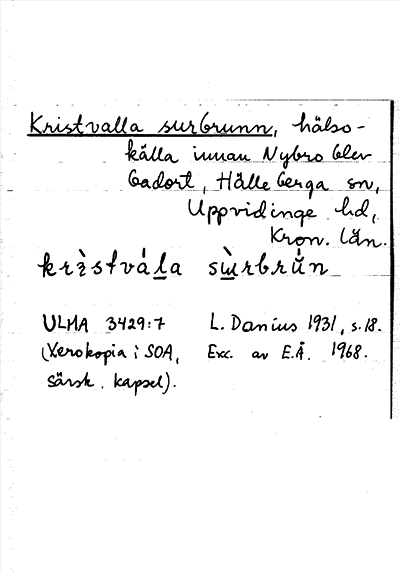 Kristvalla surbrunn, hälso-
källa innan Nybro blev
badort, Hälleberga sn,
Uppvidinge hd,
Kron. län.
krìstvála sùrbrún
ULMA 3429:7 L. Danius 1931, s. 18.
(Xerokopia i SOA, Exc. av E.Å. 1968.
särsk. kapsel).